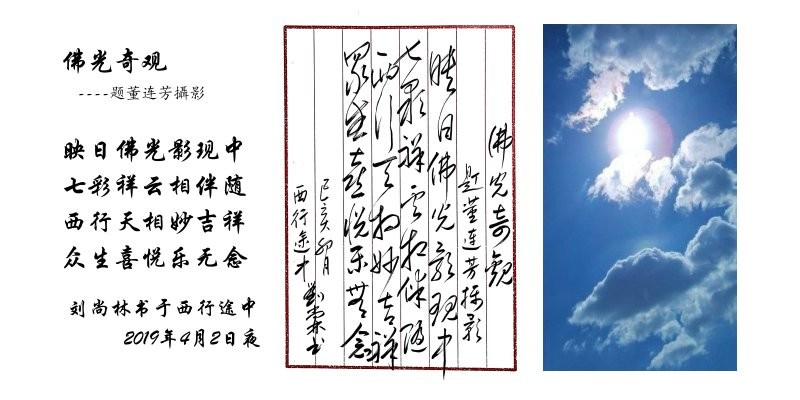 佛光奇观
----题董连芳攝影
映日佛光影现中
七彩祥云相伴随
西行天相妙吉祥
众生喜悦乐无念
刘尚林书于西行途中
2019年4月2日夜
佛光奇觀
題董连芳攝影
映日佛光影現中
七彩祥雲相伴随
西行天相妙吉祥
眾生喜悦乐無念
己亥卯月
西行途中